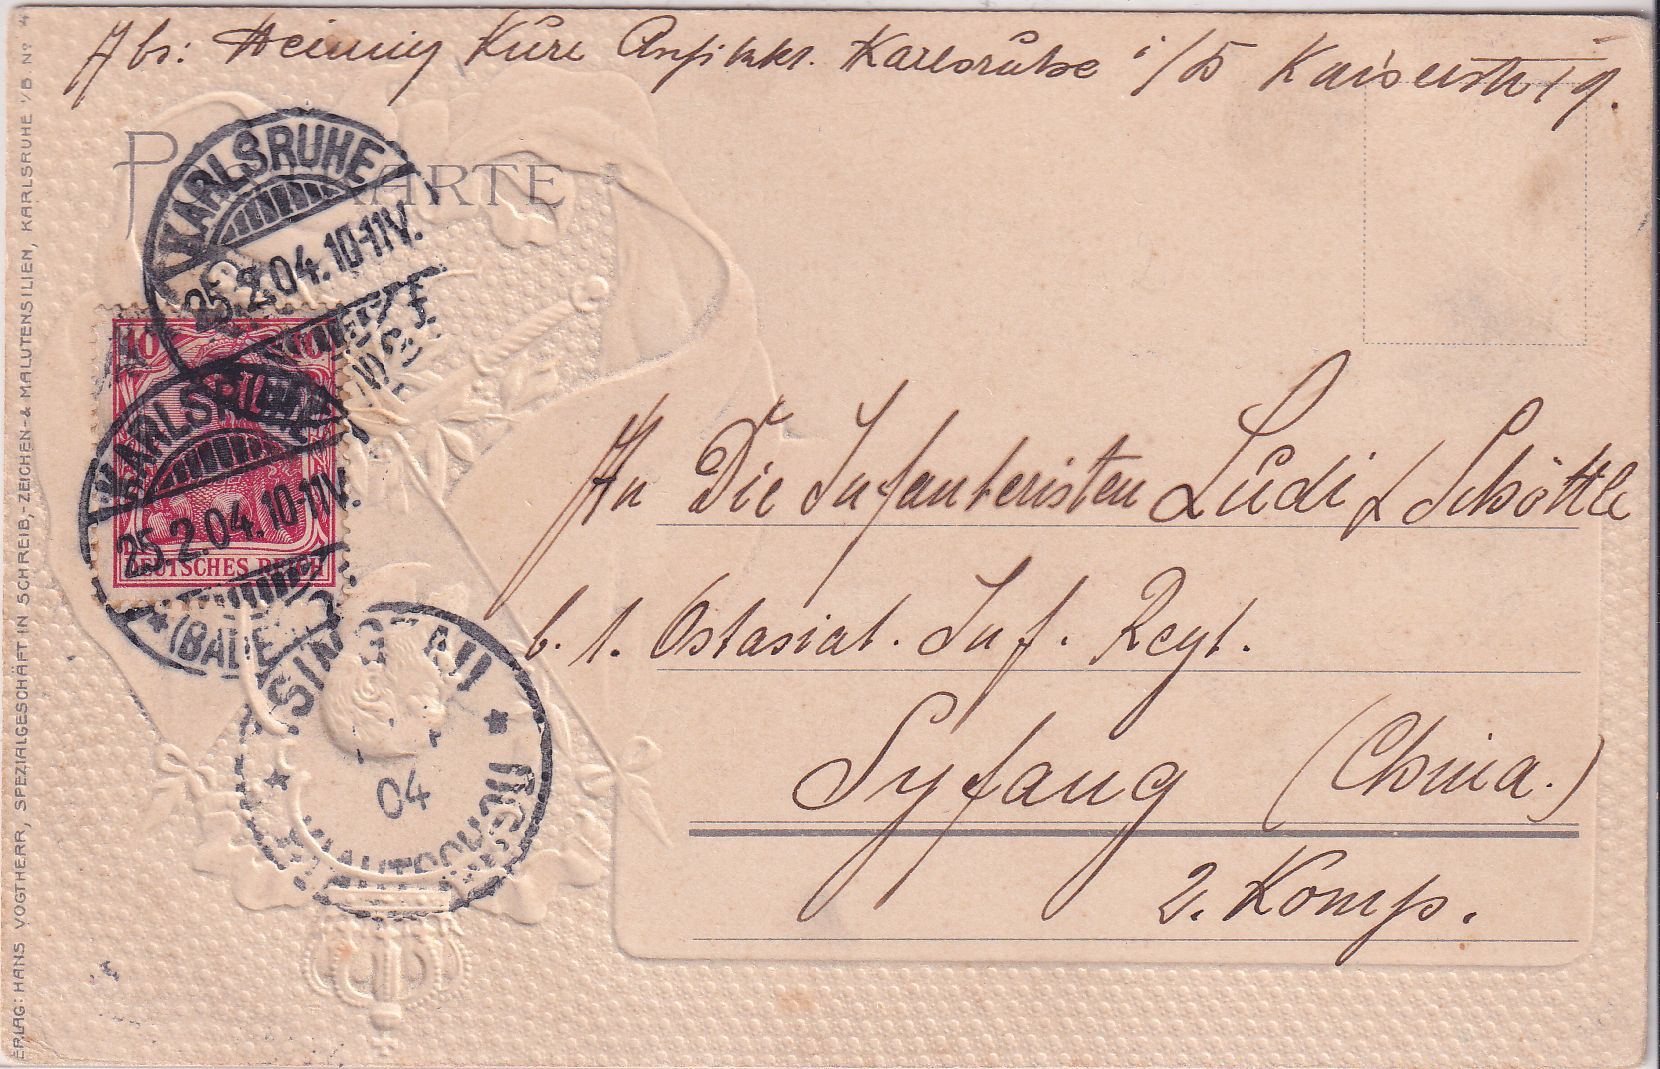 Abs: Kure Karlsruhe i/B Kaiserstr 19.
POSTKARTE
KARLSRUHE
25.2.04.10-11V.
10 10
KARLSRUHE
25.2.04.10-11V.
DEUTSCHES REICH
*(BADEN)
TSINGTAU
04
* KIAUTSCHOU *
An Die Infanteristen Lüdi & Schöttle
b. 1. Ostasiat. Inf. Regt.
Syfang (China.)
2. Komp.
ERLAG: HANS VOGTHERR, SPEZIALGESCHÄFT IN SCHREIB-, ZEICHEN- & MALUTENSILIEN, KARLSRUHE I/B. Nº 4